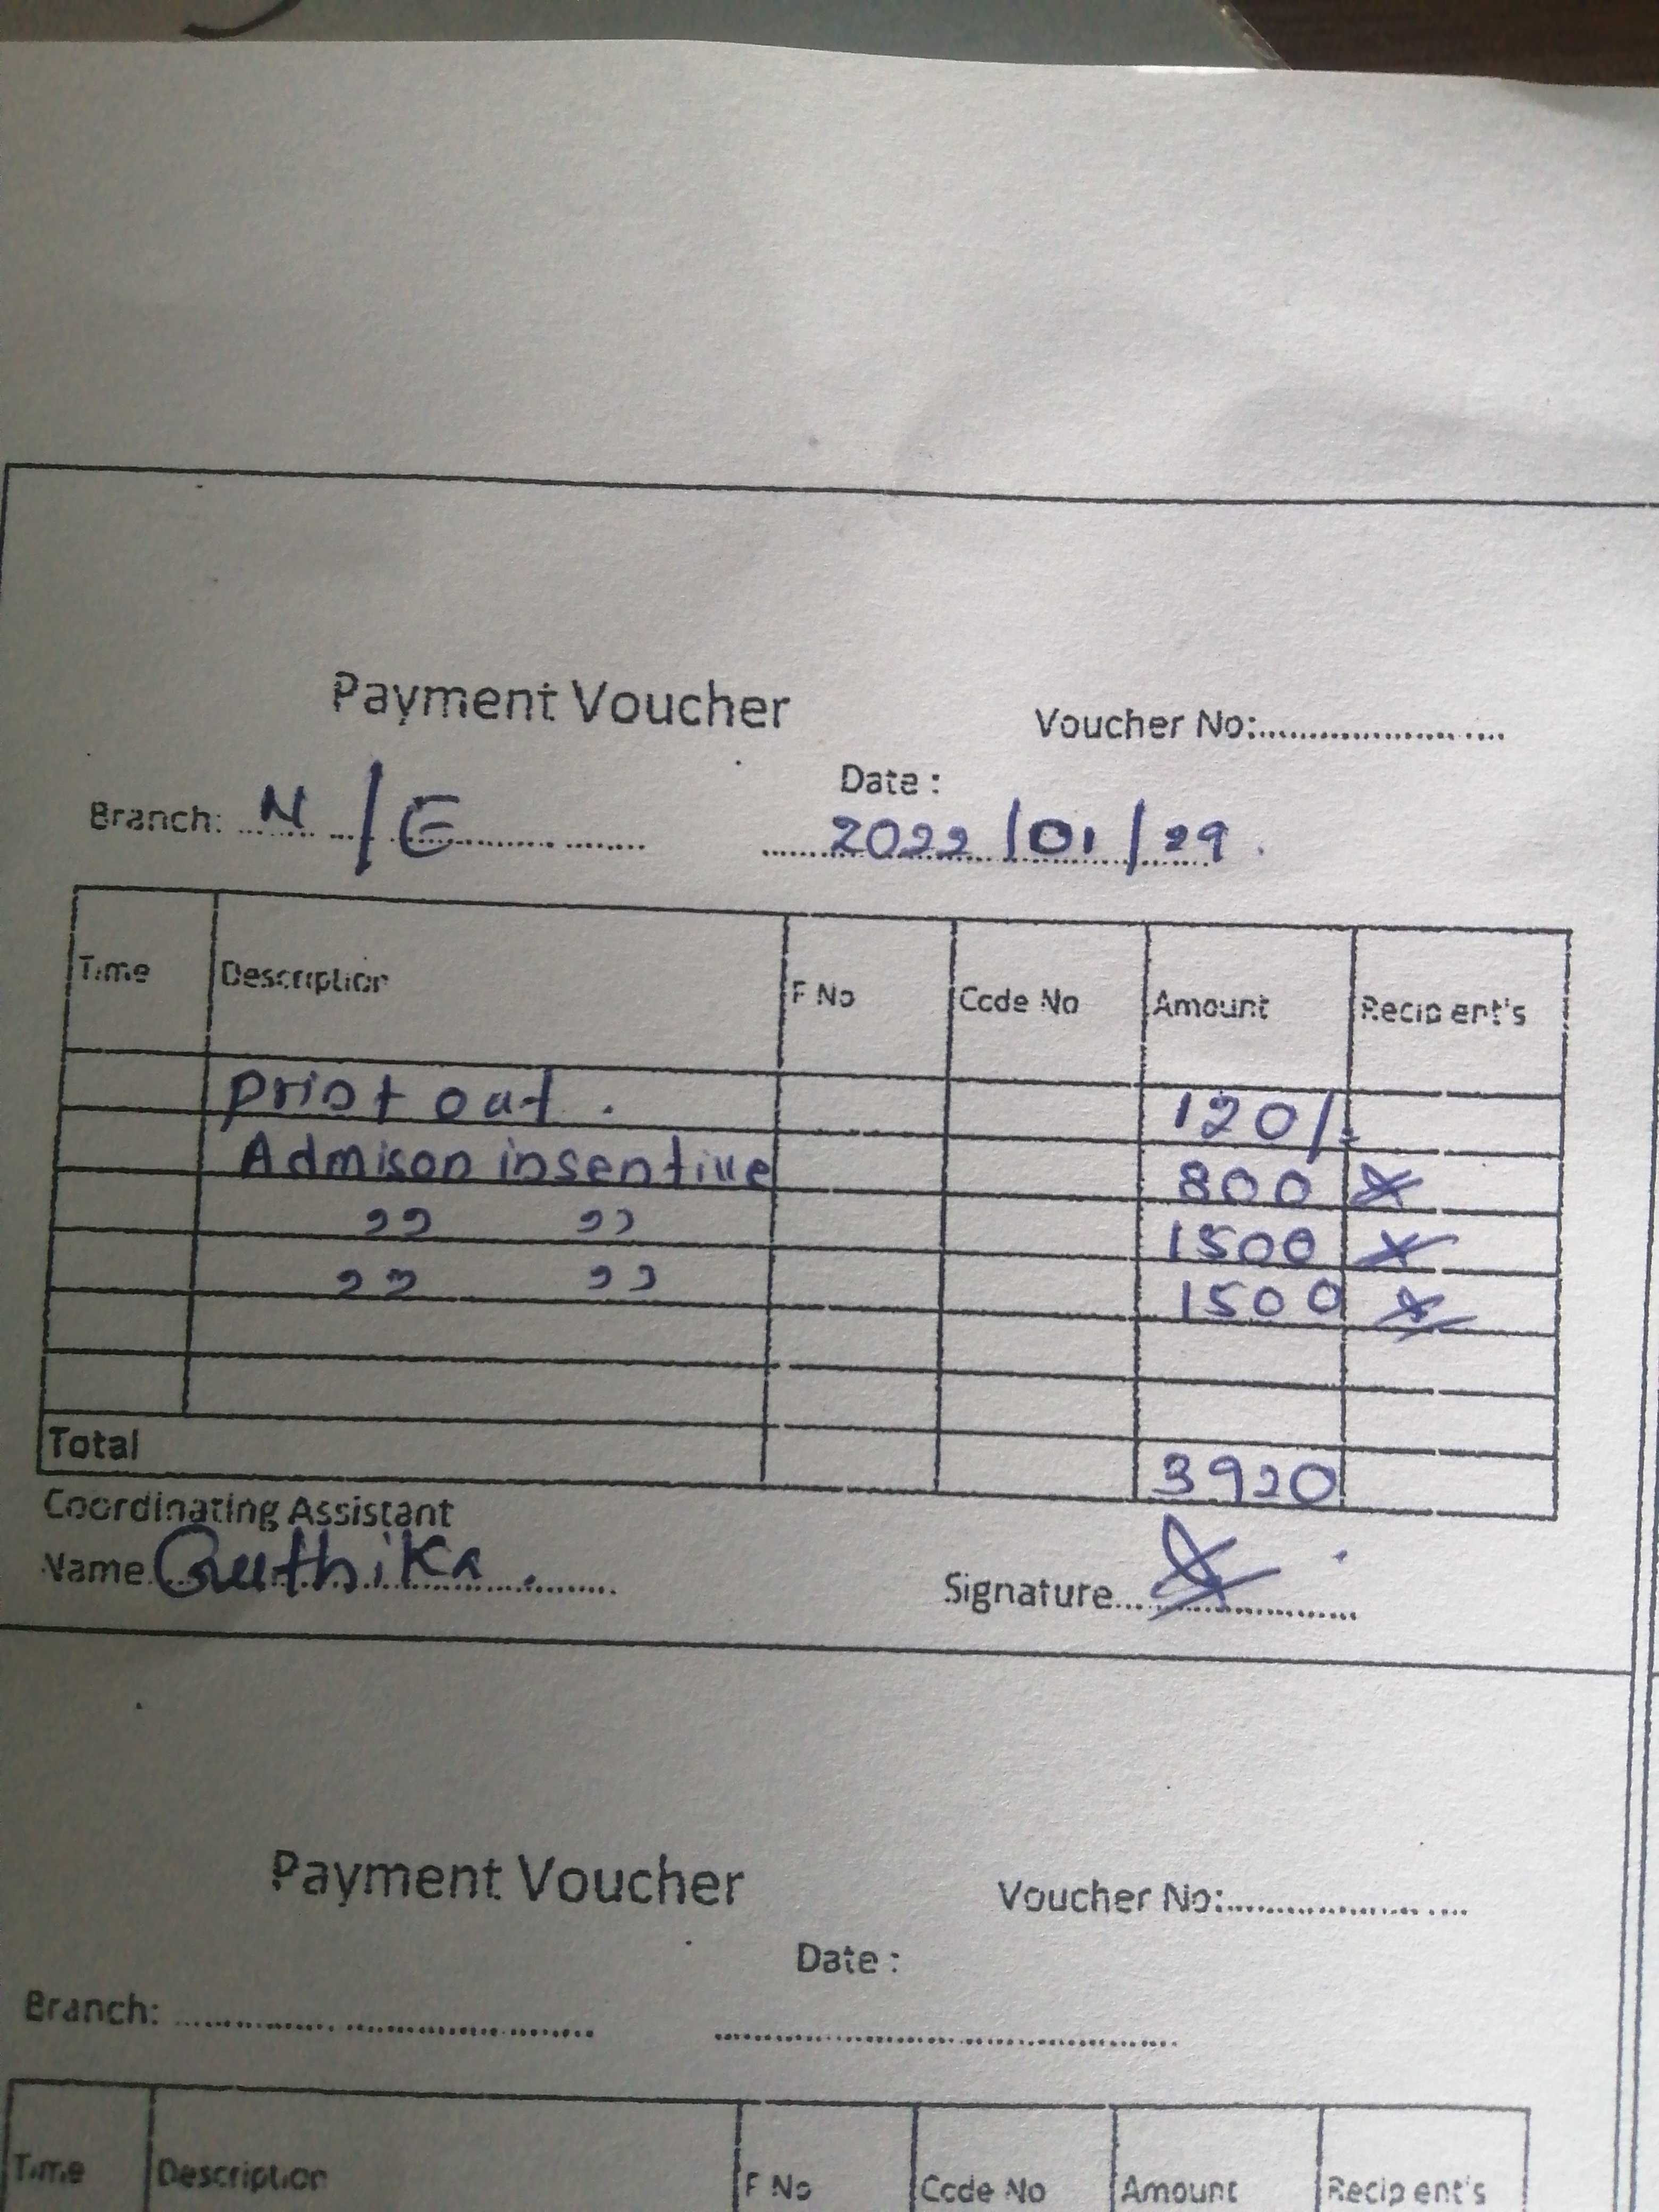 Payment Voucher
Voucher No:........................
Date :
Branch: N/E
2022/01/29.
Time Description F No Code No Amount Recipient's
Print out. 120/-
Admison insentive 800
,, ,, 1500
,, ,, 1500
Total 3920
Coordinating Assistant
Name Ruthika. Signature........................
Payment Voucher
Voucher No:........................
Date :
Branch: ........................ ........................
Time Description F No Code No Amount Recipient's